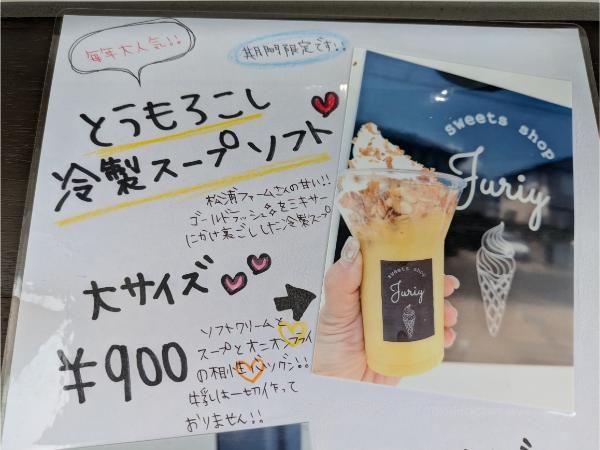 毎年大人気!!
期間限定です!!
とうもろこし
冷製スープソフト
松浦ファームさんの甘い!!
ゴールドラッシュをミキサー
にかけ裏ごしした冷製スープ
大サイズ
¥900
ソフトクリームと
スープとオニオンフライ
の相性バツグン!!
牛乳は一切作って
おりません!!
sweets shop
Juriy
sweets shop
Juriy